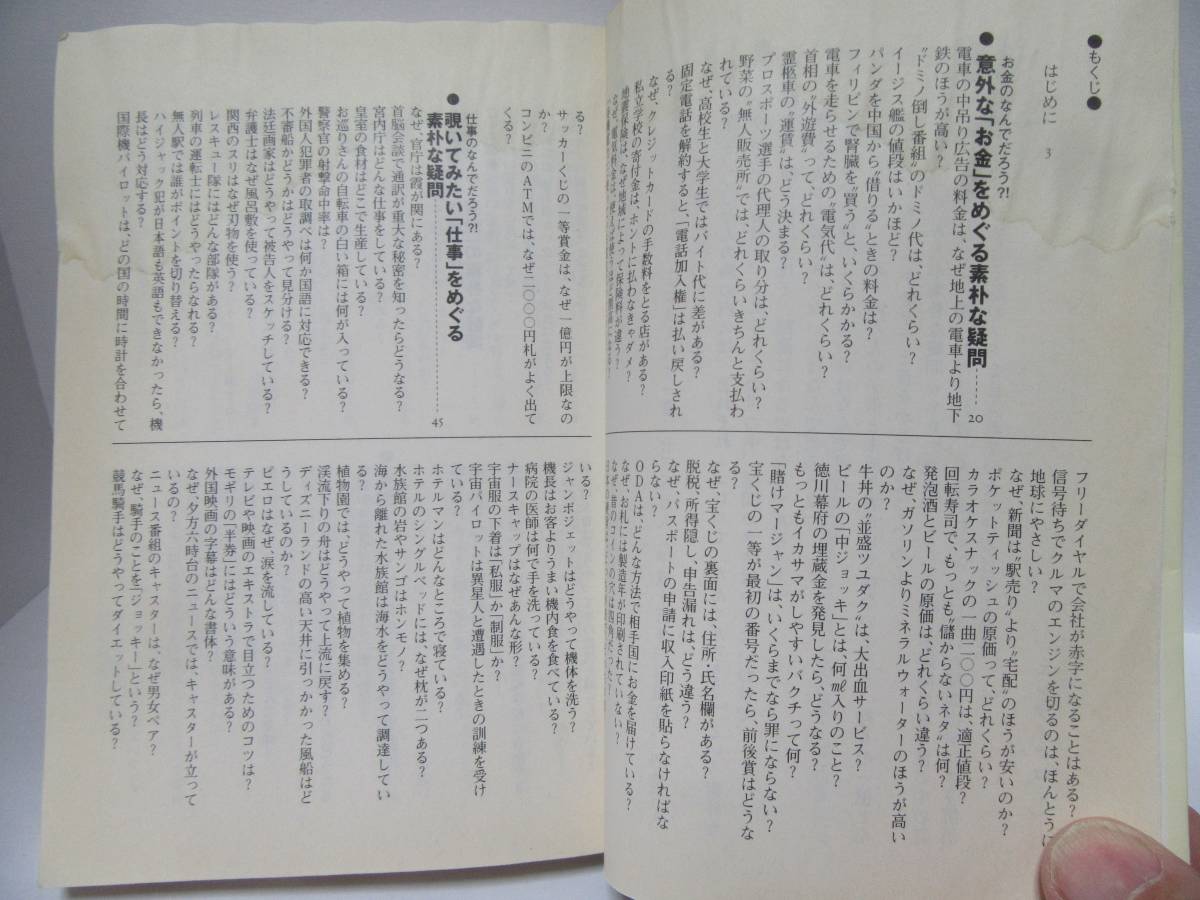 ●もくじ●
はじめに 3
お金のなんでだろう?!
●意外な「お金」をめぐる素朴な疑問 20
電車の中吊り広告の料金は、なぜ地上の電車より地下
鉄のほうが高い?
〝ドミノ倒し番組〟のドミノ代は、どれくらい?
イージス艦の値段はいかほど?
パンダを中国から〝借りる〟ときの料金は?
フィリピンで腎臓を〝買う〟と、いくらかかる?
電車を走らせるための〝電気代〟は、どれくらい?
首相の〝外遊費〟って、どれくらい?
霊柩車の〝運賃〟は、どう決まる?
プロスポーツ選手の代理人の取り分は、どれくらい?
野菜の〝無人販売所〟では、どれくらいきちんと支払わ
れている?
なぜ、高校生と大学生ではバイト代に差がある?
固定電話を解約すると、「電話加入権」は払い戻しされ
る?
なぜ、クレジットカードの手数料をとる店がある?
私立学校の寄付金は、ホントに払わなきゃダメ?
地震保険は、なぜ地域によって保険料が違う?
フリーダイヤルで会社が赤字になることはある?
信号待ちでクルマのエンジンを切るのは、ほんとうに
地球にやさしい?
なぜ、新聞は〝駅売り〟より〝宅配〟のほうが安いのか?
ポケットティッシュの原価って、どれくらい?
カラオケスナックの一曲二〇〇円は、適正値段?
回転寿司で、もっとも〝儲からないネタ〟は何?
発泡酒とビールの原価は、どれくらい違う?
なぜ、ガソリンよりミネラルウォーターのほうが高い
のか?
牛丼の〝並盛ツユダク〟は、大出血サービス?
ビールの「中ジョッキ」とは、何㎖入りのこと?
徳川幕府の埋蔵金を発見したら、どうなる?
もっともイカサマがしやすいバクチって何?
「賭けマージャン」は、いくらまでなら罪にならない?
宝くじの一等が最初の番号だったら、前後賞はどうな
る?
なぜ、宝くじの裏面には、住所・氏名欄がある?
脱税、所得隠し、申告漏れは、どう違う?
なぜ、パスポートの申請に収入印紙を貼らなければな
らない?
ODAは、どんな方法で相手国にお金を届けている?
なぜ、お札には製造年が印刷されていない?
なぜ、昔のコインの穴は四角だった?
サッカーくじの一等賞金は、なぜ一億円が上限なの
か?
コンビニのATMでは、なぜ二〇〇〇円札がよく出て
くる?
仕事のなんでだろう?!
●覗いてみたい「仕事」をめぐる
素朴な疑問 45
なぜ、官庁は霞が関にある?
首脳会談で通訳が重大な秘密を知ったらどうなる?
宮内庁はどんな仕事をしている?
皇室の食材はどこで生産している?
お巡りさんの自転車の白い箱には何が入っている?
警察官の射撃命中率は?
外国人犯罪者の取調べは何か国語に対応できる?
不審船かどうかはどうやって見分ける?
法廷画家はどうやって被告人をスケッチしている?
弁護士はなぜ風呂敷を使っている?
関西のスリはなぜ刃物を使う?
レスキュー隊にはどんな部隊がある?
列車の運転士にはどうやったらなれる?
無人駅では誰がポイントを切り替える?
ハイジャック犯が日本語も英語もできなかったら、機
長はどう対応する?
国際機パイロットは、どの国の時間に時計を合わせて
いる?
ジャンボジェットはどうやって機体を洗う?
機長はお客よりうまい機内食を食べている?
病院の医師は何で手を洗っている?
ナースキャップはなぜあんな形?
宇宙服の下着は「私服」か「制服」か?
宇宙パイロットは異星人と遭遇したときの訓練を受け
ている?
ホテルマンはどんなところで寝ている?
ホテルのシングルベッドには、なぜ枕が二つある?
水族館の岩やサンゴはホンモノ?
海から離れた水族館は海水をどうやって調達してい
る?
植物園では、どうやって植物を集める?
渓流下りの舟はどうやって上流に戻す?
ディズニーランドの高い天井に引っかかった風船はど
うしているのか?
ピエロはなぜ、涙を流している?
テレビや映画のエキストラで目立つためのコツは?
モギリの「半券」にはどういう意味がある?
外国映画の字幕はどんな書体?
なぜ、夕方六時台のニュースでは、キャスターが立って
いるの?
ニュース番組のキャスターは、なぜ男女ペア?
なぜ、騎手のことを「ジョッキー」という?
競馬騎手はどうやってダイエットしている?